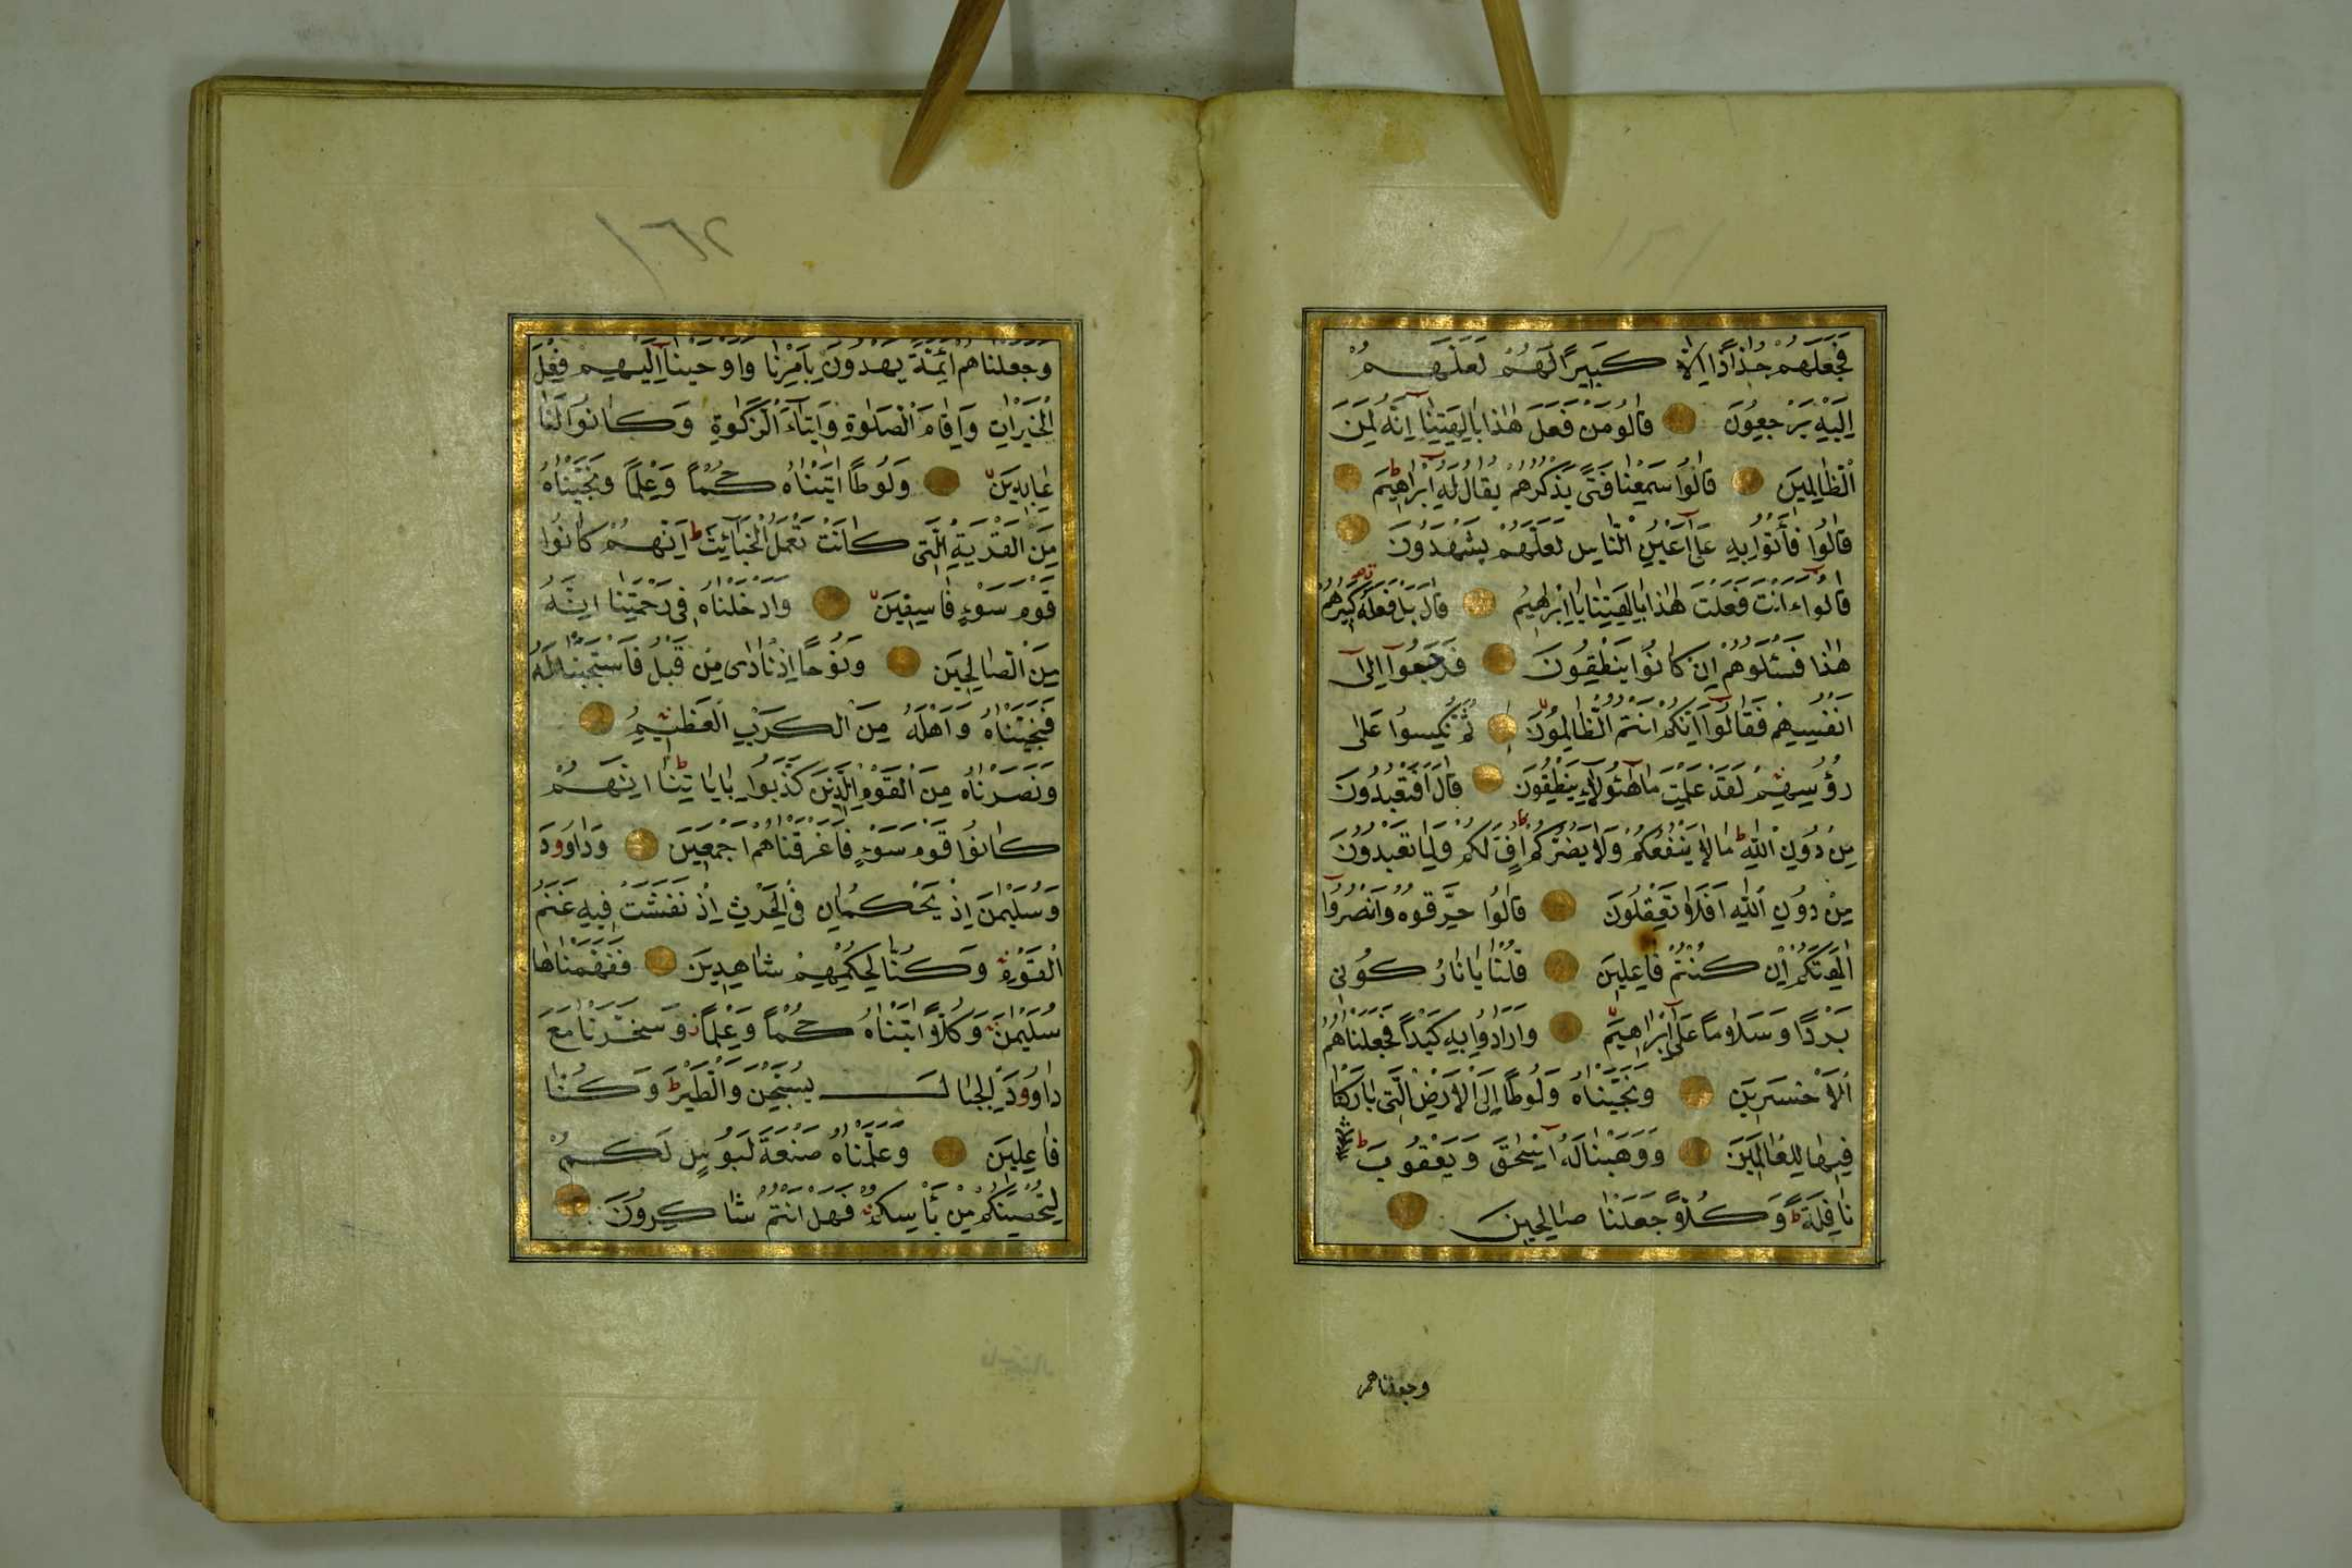 فَجَعَلَهُمْ جُذَاذًا اِلَّا كَبِيرًا لَهُمْ لَعَلَّهُمْ
اِلَيْهِ يَرْجِعُونَ قَالُو مَنْ فَعَلَ هٰذَا بِاٰلِهَتِنَٓا اِنَّهُ لَمِنَ
الظَّالِمِينَ قَالُوا سَمِعْنَا فَتًى يَذْكُرُهُمْ يُقَالُ لَهُٓ اِبْرٰاهِيمَ
قَالُوا فَأْتُوا بِهِ عَلٰٓى اَعْيُنِ النَّاسِ لَعَلَّهُمْ يَشْهَدُونَ
قَالُوٓا ءَاَنْتَ فَعَلْتَ هٰذَا بِاٰلِهَتِنَا يَٓا اِبْرٰهِيمُ قَالَ بَلْ فَعَلَهُ كَبِيرُهُمْ
هٰذَا فَسْئَلُوهُمْ اِنْ كَانُوا يَنْطِقُونَ فَرَجَعُوٓا اِلٰٓى
اَنْفُسِهِمْ فَقَالُوٓا اِنَّكُمْ اَنْتُمُ الظَّالِمُونَ ثُمَّ نُكِسُوا عَلٰى
رُؤُسِهِمْ لَقَدْ عَلِمْتَ مَا هٰٓؤُلَٓاءِ يَنْطِقُونَ قَالَ اَفَتَعْبُدُونَ
مِنْ دُونِ اللّٰهِ مَا لَا يَنْفَعُكُمْ وَلَا يَضُرُّكُمْ اُفٍّ لَكُمْ وَلِمَا تَعْبُدُونَ
مِنْ دُونِ اللّٰهِ اَفَلَا تَعْقِلُونَ قَالُوا حَرِّقُوهُ وَانْصُرُٓوا
اٰلِهَتَكُمْ اِنْ كُنْتُمْ فَاعِلِينَ قُلْنَا يَا نَارُ كُونِى
بَرْدًا وَسَلَامًا عَلٰٓى اِبْرٰاهِيمَ وَاَرَادُوا بِهِ كَيْدًا فَجَعَلْنَاهُمُ
الْاَخْسَرِينَ وَنَجَّيْنَاهُ وَلُوطًا اِلَى الْاَرْضِ الَّتِى بَارَكْنَا
فِيهَا لِلْعَالَمِينَ وَوَهَبْنَا لَهُٓ اِسْحٰقَ وَيَعْقُوبَ
نَافِلَةً وَكُلًّا جَعَلْنَا صَالِحِينَ
وجعلناهم
١٦٢
وَجَعَلْنَاهُمْ اَئِمَّةً يَهْدُونَ بِاَمْرِنَا وَاَوْحَيْنَٓا اِلَيْهِمْ فِعْلَ
الْخَيْرَاتِ وَاِقَامَ الصَّلٰوةِ وَاِيتَٓاءَ الزَّكٰوةِ وَكَانُوا لَنَا
عَابِدِينَ وَلُوطًا اٰتَيْنَاهُ حُكْمًا وَعِلْمًا وَنَجَّيْنَاهُ
مِنَ الْقَرْيَةِ الَّتِى كَانَتْ تَعْمَلُ الْخَبَٓائِثَ اِنَّهُمْ كَانُوا
قَوْمَ سَوْءٍ فَاسِقِينَ وَاَدْخَلْنَاهُ فِى رَحْمَتِنَا اِنَّهُ
مِنَ الصَّالِحِينَ وَنُوحًا اِذْ نَادٰى مِنْ قَبْلُ فَاسْتَجَبْنَا لَهُ
فَنَجَّيْنَاهُ وَاَهْلَهُ مِنَ الْكَرْبِ الْعَظِيمِ
وَنَصَرْنَاهُ مِنَ الْقَوْمِ الَّذِينَ كَذَّبُوا بِاٰيَاتِنَا اِنَّهُمْ
كَانُوا قَوْمَ سَوْءٍ فَاَغْرَقْنَاهُمْ اَجْمَعِينَ وَدَاوُودَ
وَسُلَيْمٰنَ اِذْ يَحْكُمَانِ فِى الْحَرْثِ اِذْ نَفَشَتْ فِيهِ غَنَمُ
الْقَوْمِ وَكُنَّا لِحُكْمِهِمْ شَاهِدِينَ فَفَهَّمْنَاهَا
سُلَيْمٰنَ وَكُلًّا اٰتَيْنَاهُ حُكْمًا وَعِلْمًا وَسَخَّرْنَا مَعَ
دَاوُودَ الْجِبَالَ يُسَبِّحْنَ وَالطَّيْرَ وَكُنَّا
فَاعِلِينَ وَعَلَّمْنَاهُ صَنْعَةَ لَبُوسٍ لَكُمْ
لِتُحْصِنَكُمْ مِنْ بَأْسِكُمْ فَهَلْ اَنْتُمْ شَاكِرُونَ